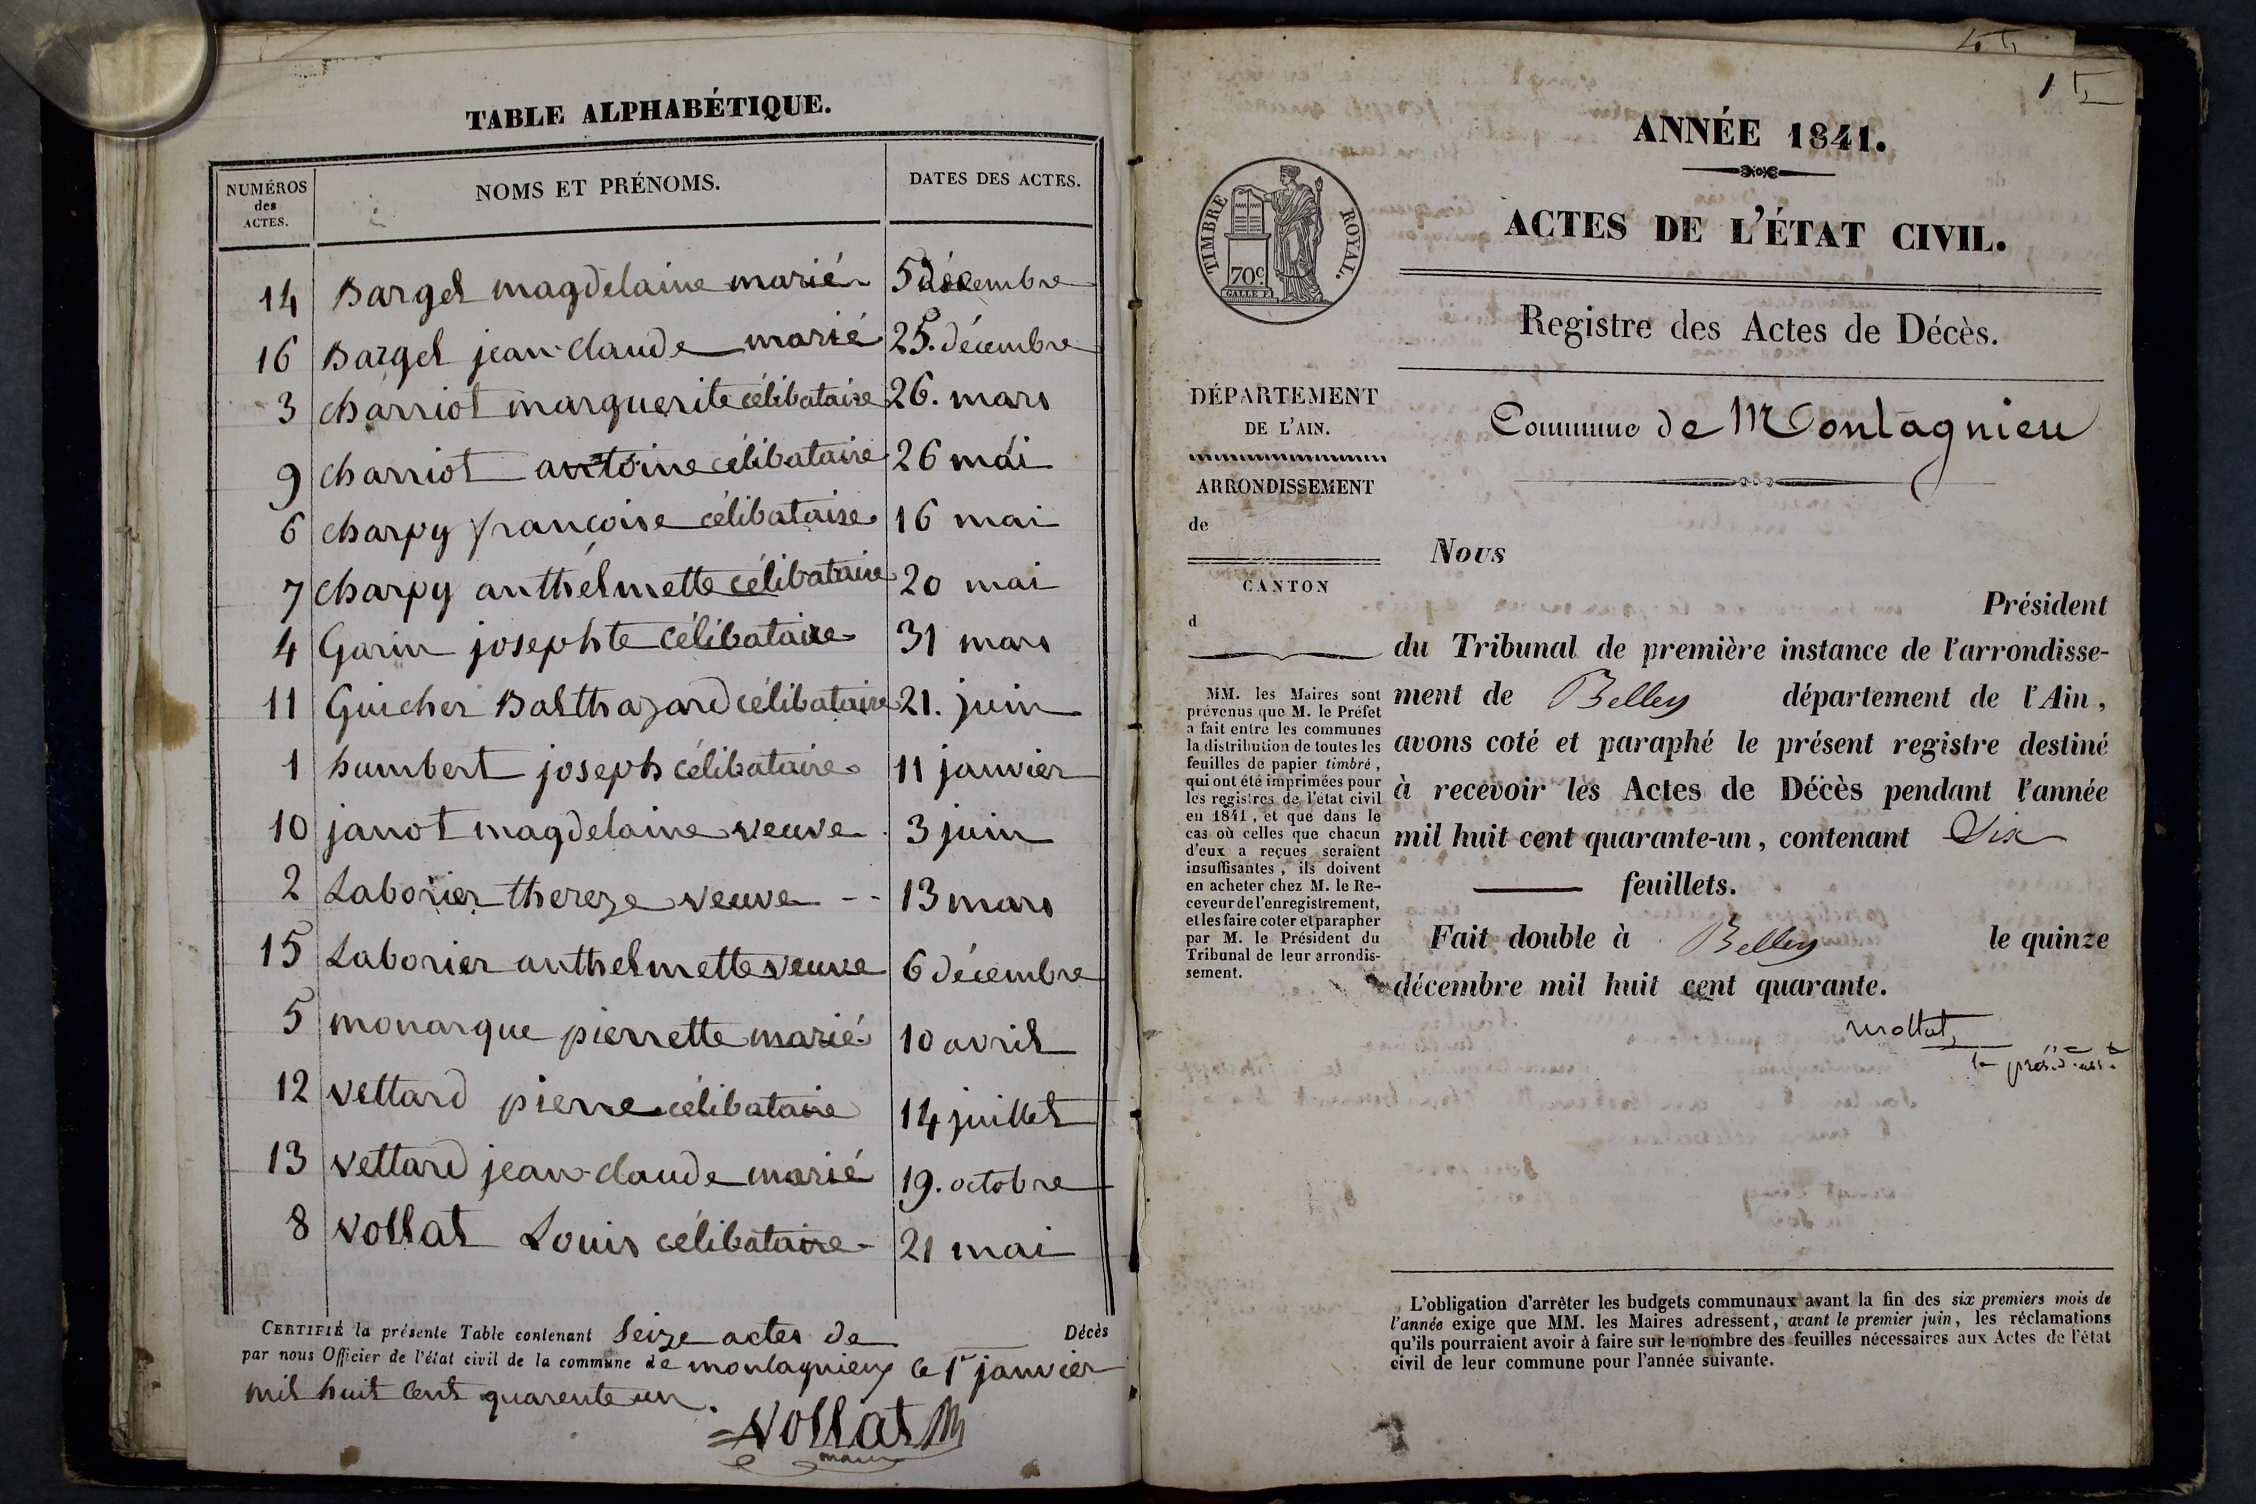 TABLE ALPHABÉTIQUE.
NUMÉROS
des
ACTES.
NOMS ET PRÉNOMS.
DATES DES ACTES.
14 Bargel magdelaine marié 5 décembre
16 Bargel jean-claude marié 25. décembre
3 charriot marguerite célibataire 26. mars
9 charriot antoine célibataire 26 mai
6 charpy françoise célibataire 16 mai
7 charpy anthelmette célibataire 20 mai
4 Garin josephte célibataire 31 mars
11 Guicher Balthazard célibataire 21. juin
1 humbert joseph célibataire 11 janvier
10 janot magdelaine veuve 3 juin
2 Laborier thereze veuve -- 13 mars
15 Laborier anthelmette veuve 6 décembre
5 monarque pierrette marié 10 avril
12 vettard pierre célibataire 14 juillet
13 vettard jean-claude marié 19. octobre
8 vollat Louis célibataire 21 mai
CERTIFIÉ la présente Table contenant Seize actes de Décès
par nous Officier de l'état civil de la commune de montagnieu le 1er janvier
mil huit cent quarente un.
Vollat
maire
ANNÉE 1841.
TIMBRE ROYAL.
70c
ACTES DE L'ÉTAT CIVIL.
Registre des Actes de Décès.
DÉPARTEMENT
DE L'AIN.
ARRONDISSEMENT
de
CANTON
d
MM. les Maires sont
prévenus que M. le Préfet
a fait entre les communes
la distribution de toutes les
feuilles de papier timbré,
qui ont été imprimées pour
les registres de l'état civil
en 1841, et que dans le
cas où celles que chacun
d'eux a reçues seraient
insuffisantes, ils doivent
en acheter chez M. le Re-
ceveur de l'enregistrement,
et les faire coter et parapher
par M. le Président du
Tribunal de leur arrondis-
sement.
Commune de Montagnieu
Nous
Président
du Tribunal de première instance de l'arrondisse-
ment de Belley département de l'Ain,
avons coté et paraphé le présent registre destiné
à recevoir les Actes de Décès pendant l'année
mil huit cent quarante-un, contenant Six
feuillets.
Fait double à Belley le quinze
décembre mil huit cent quarante.
L'obligation d'arrêter les budgets communaux avant la fin des six premiers mois de
l'année exige que MM. les Maires adressent, avant le premier juin, les réclamations
qu'ils pourraient avoir à faire sur le nombre des feuilles nécessaires aux Actes de l'état
civil de leur commune pour l'année suivante.